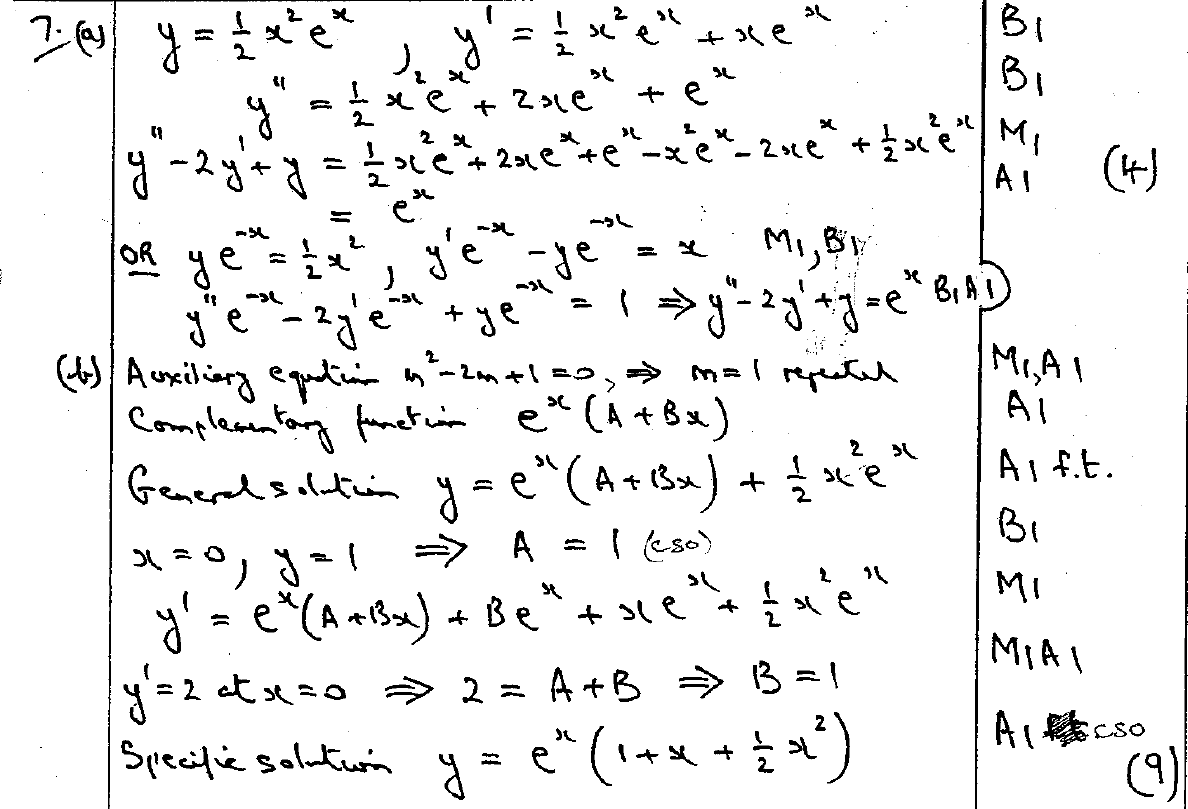 7. (a) y = 1/2 x²eˣ , y' = 1/2 x²eˣ + xeˣ B1
y'' = 1/2 x²eˣ + 2xeˣ + eˣ B1
y'' - 2y' + y = 1/2 x²eˣ + 2xeˣ + eˣ - x²eˣ - 2xeˣ + 1/2 x²eˣ M1
= eˣ A1 (4)
OR ye⁻ˣ = 1/2 x² , y'e⁻ˣ - ye⁻ˣ = x M1, B1
y''e⁻ˣ - 2y'e⁻ˣ + ye⁻ˣ = 1 ⇒ y'' - 2y' + y = eˣ B1A1
(b) Auxiliary equation m² - 2m + 1 = 0, ⇒ m = 1 repeated M1, A1
Complementary function eˣ (A + Bx) A1
General solution y = eˣ (A + Bx) + 1/2 x²eˣ A1 f.t.
x = 0, y = 1 ⇒ A = 1 (cso) B1
y' = eˣ(A + Bx) + Beˣ + xeˣ + 1/2 x²eˣ M1
y' = 2 at x = 0 ⇒ 2 = A + B ⇒ B = 1 M1A1
Specific solution y = eˣ (1 + x + 1/2 x²) A1 cso
(9)